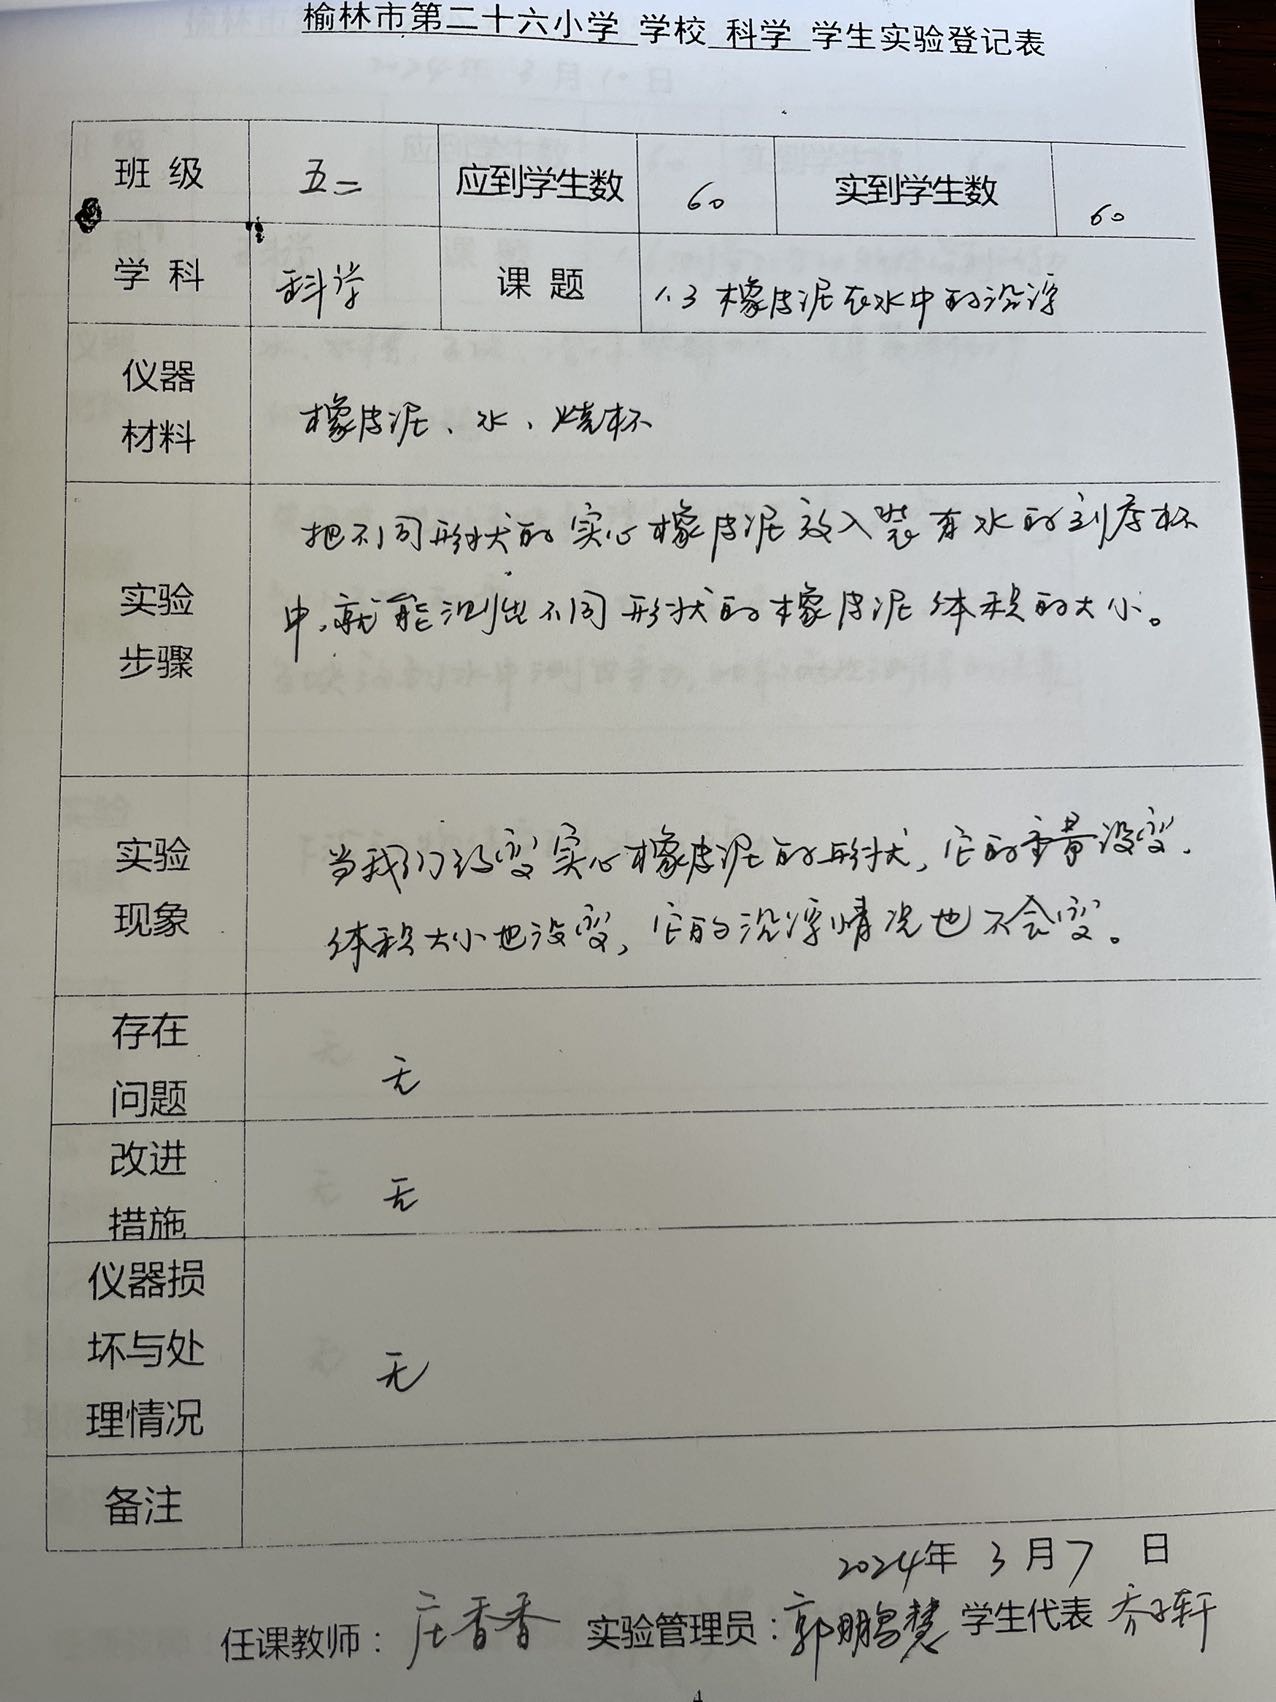 榆林市第二十六小学 学校 科学 学生实验登记表
班级 五二 应到学生数 60 实到学生数 60
学科 科学 课题 1.3 橡皮泥在水中的沉浮
仪器
材料
橡皮泥、水、烧杯
实验
步骤
把不同形状的实心橡皮泥放入装有水的刻度杯
中,就能测出不同形状的橡皮泥体积的大小。
实验
现象
当我们改变实心橡皮泥的形状,它的重量没变,
体积大小也没变,它的沉浮情况也不会变。
存在
问题
无
改进
措施
无
仪器损
坏与处
理情况
无
备注
2024年 3 月 7 日
任课教师: 庄香香 实验管理员: 郭鹏慧 学生代表 乔子轩
4